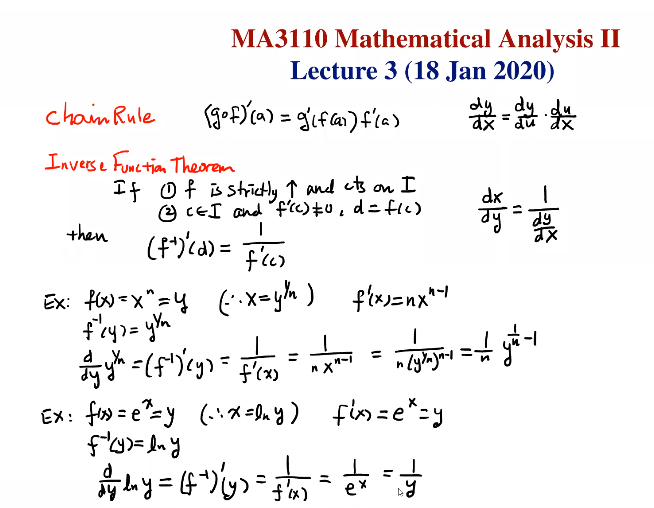 MA3110 Mathematical Analysis II
Lecture 3 (18 Jan 2020)
Chain Rule (g∘f)'(a) = g'(f(a)) f'(a) dy/dx = dy/du · du/dx
Inverse Function Theorem
If ① f is strictly ↑ and cts on I
② c∈I and f'(c)≠0, d = f(c) dx/dy = 1/(dy/dx)
then (f⁻¹)'(d) = 1/f'(c)
Ex: f(x) = xⁿ = y (∴ x = y^(1/n)) f'(x) = nx^(n-1)
f⁻¹(y) = y^(1/n)
d/dy y^(1/n) = (f⁻¹)'(y) = 1/f'(x) = 1/(n x^(n-1)) = 1/(n (y^(1/n))^(n-1)) = 1/n y^(1/n - 1)
Ex: f(x) = eˣ = y (∴ x = ln y) f'(x) = eˣ = y
f⁻¹(y) = ln y
d/dy ln y = (f⁻¹)'(y) = 1/f'(x) = 1/eˣ = 1/y